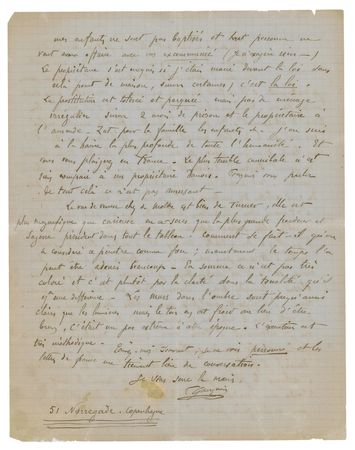 mes enfants ne sont pas baptisés et tout personne ne
veut avoir affaire avec un excommunié (j'exagère
Le propriétaire s'est enquis si j'étais marié devant la loi sans
cela point de maison, (
c'est la loi.
La prostitution est tolérée et
mais pas de ménage
irrégulier sinon 2 mois de prison et le propriétaire à
l'amende.
pour la famille les enfants etc. J'en suis
à la haine la plus profonde de toute l'humanité. Et
vous vous plaignez en France. Le plus terrible cannibale n'est
pas comparé à un propriétaire danois.
vous parler
de tout cela ce n'est pas amusant.
La vue de
chez
est bien de Turner - elle est
plus magnifique que curieuse en ce sens que la plus grande froideur et
sagesse président dans tout le tableau - comment se fait-il qu'on
a considéré ce peintre comme fou ; maintenant le temps l'a
peut être adouci beaucoup - En somme ce n'est pas très
coloré et c'est plutôt par la clarté dans la tonalité qu'il
est une différence - Les murs dans l'ombre sont presqu'aussi
clairs que les lumières mais le ton est froid au lieu d'être
brun, c'était un pas
à cette époque. L'exécution est
très méthodique. Écrivez-moi souvent, je ne vois personne et les
lettres de France me tiennent lieu de conversation.
Je vous serre la main.
P Gauguin
51 Norregade. Copenhague